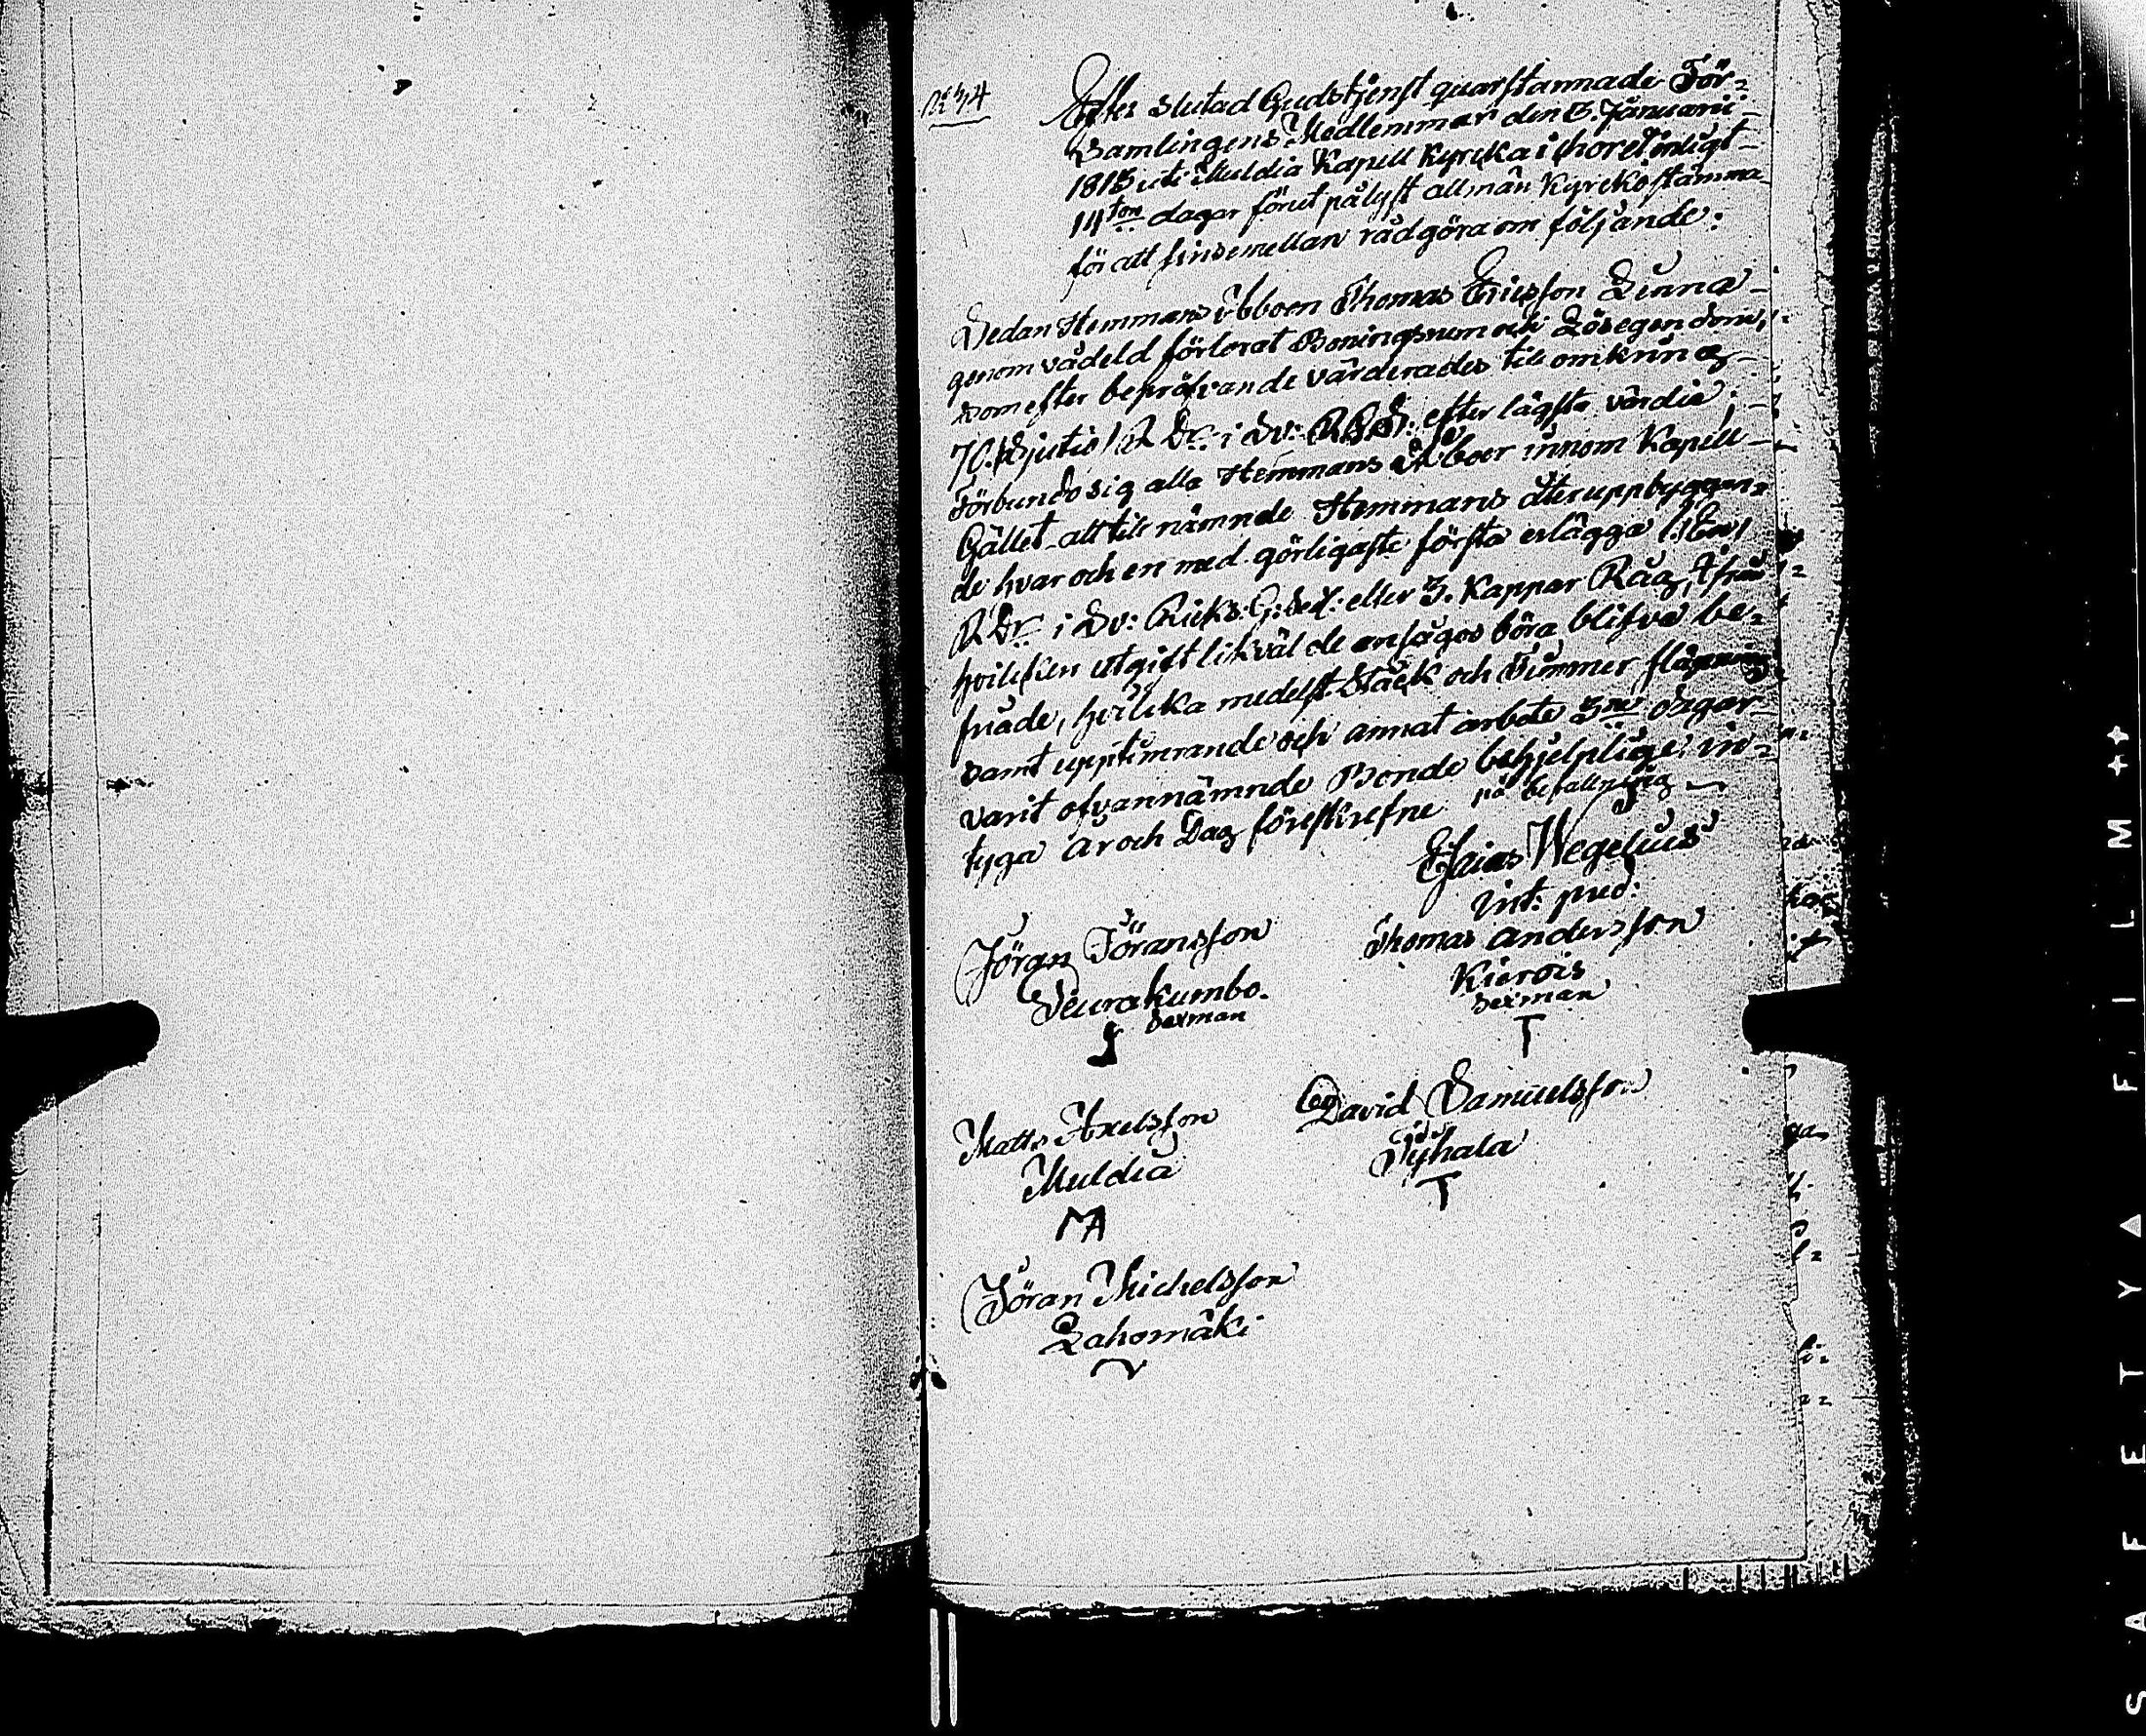 Efter slutad Gudstjenst quarstannade För-
samlingens Medlemmar den 8. Januarii
1815 uti Muldia Kapell Kyrcka i choret enligt
14ton dagar förut pålyst allmän Kyrckostämma
för att sinsemellan rådgöra om följande:
Sedan Hemmans Åboen Thomas Ericsson Linna
genom vådeld förlorat Boningsrum och Lösegendom,
som efter bepröfvande värderades till omkring
70. /Sjutio/ R Dr: i Sv: R.G.S: efter lägsta värdie;
Förbundo sig alla Hemmans Åboer innom Kapell
Gället att till nämnde Hemmans återuppbyggan-
de hvar och en med görligaste första erlägga 1./En/
R Dr: i Sv: Riks: G: Sed: eller 3. Kappar Råg, ifrån
hvilcken utgift likväl de ansågos böra blifva be-
friade, hvilcka medelst Stäck och Timmer
samt upptimrande och annat arbete 3ne dagar
varit ofvannämnde Bonde behjelplige; in-
tyga År och Dag föreskrefne på befallning
Esaias Wegelius
int: pred:
Jöran Jöransson
Seurakumbo.
Sexman
Thomas Andersson
Kierois
Sexman
T
Matts Axelsson
Muldia
MA
David Samuelsson
Tyhala
T
Jöran Michelsson
Lahomäki
SAFETY FILM